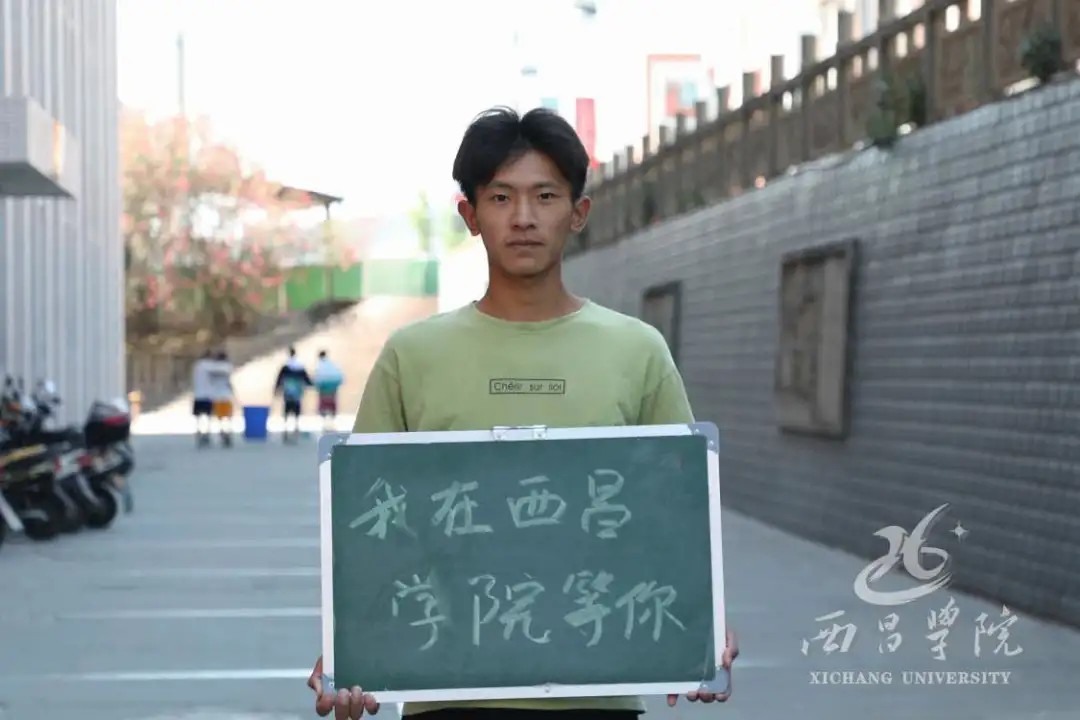 Chérir sur noi
我在西昌
学院等你
西昌學院
XICHANG UNIVERSITY